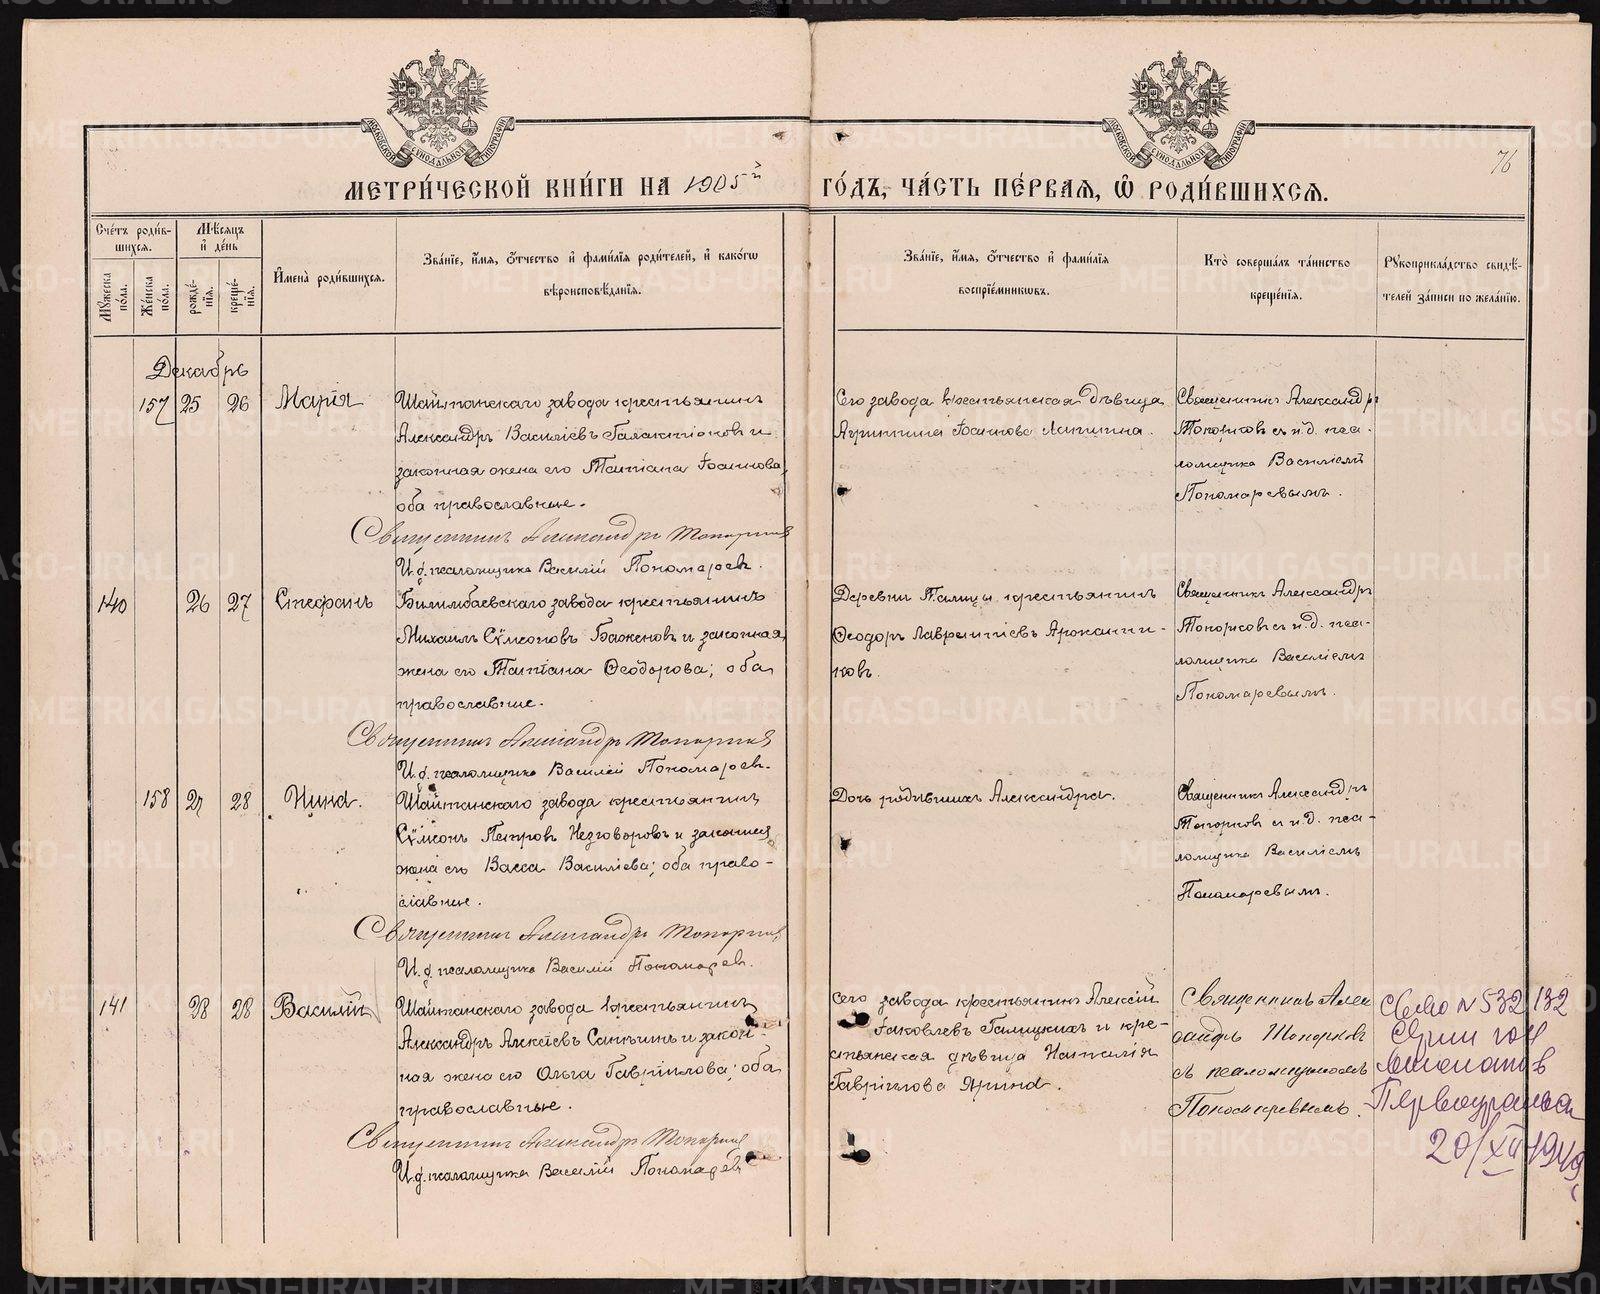 МЕТРИ́ЧЕСКОЙ КНИ́ГИ НА 1905й ГО́ДЪ, ЧА́СТЬ ПЕ́РВАЯ, Ѡ҆ РОДИ́ВШИХСЯ.
76
Сче́тъ роди́вшихся.
Мѣ́сяцъ и҆ де́нь
Мꙋ́жеска по́ла.
Же́нска по́ла.
рожде́нїя.
креще́нїя.
И҆мена̀ роди́вшихся.
Зва́нїе, и҆́мя, ѻ҆́тчество и҆ фами́лїя роди́телей, и҆ како́гѡ
вѣроисповѣ́данїя.
Зва́нїе, и҆́мя, ѻ҆́тчество и҆ фами́лїя
воспрїе́мникѡвъ.
Кто̀ соверша́лъ та́инство
креще́нїя.
Рꙋкоприкла́дство свидѣ́-
телей за́писи по жела́нїю.
Декабрь
157 25 26 Марія
Шайтанскаго завода крестьянинъ
Александръ Васильевъ Галактіоновъ и
законная жена его Татіана Іоаннова,
оба православные.
Священникъ Александръ Топорковъ
И.д. псаломщика Василій Пономаревъ.
Сего завода крестьянская дѣвица
Агриппина Іоаннова Липина.
Священникъ Александръ
Топорковъ съ и.д. пса-
ломщика Василіемъ
Пономаревымъ.
140 26 27 Стефанъ
Билимбаевскаго завода крестьянинъ
Михаилъ Сѵмеоновъ Баженовъ и законная
жена его Татіана Ѳеодорова; оба
православные.
Священникъ Александръ Топорковъ
И.д. псаломщика Василій Пономаревъ.
Деревни Талицы крестьянинъ
Ѳеодоръ Лаврентіевъ Аржанни-
ковъ.
Священникъ Александръ
Топорковъ съ и.д. пса-
ломщика Василіемъ
Пономаревымъ.
158 27 28 Нина.
Шайтанскаго завода крестьянинъ
Сѵмеонъ Петровъ Незговоровъ и законная
жена его Васса Василіева; оба право-
славные.
Священникъ Александръ Топорковъ
И.д. псаломщика Василій Пономаревъ.
Дочь родившихъ Александра.
Священникъ Александръ
Топорковъ съ и.д. пса-
ломщика Василіемъ
Пономаревымъ.
141 28 28 Василій
Шайтанскаго завода крестьянинъ
Александръ Алексіевъ Санинъ и закон
ная жена его Ольга Гавріилова; оба
православные.
Священникъ Александръ Топорковъ
И.д. псаломщика Василій Пономаревъ
Сего завода крестьянинъ Алексій
Іаковлевъ Галицкихъ и кре-
стьянская дѣвица Наталія
Гавріилова Ярина.
Священникъ Алек
сандръ Топорковъ
съ псаломщикомъ
Пономаревымъ.
N 532132
Первоуральск
20/XII 1949
METRIKI.GASO-URAL.RU